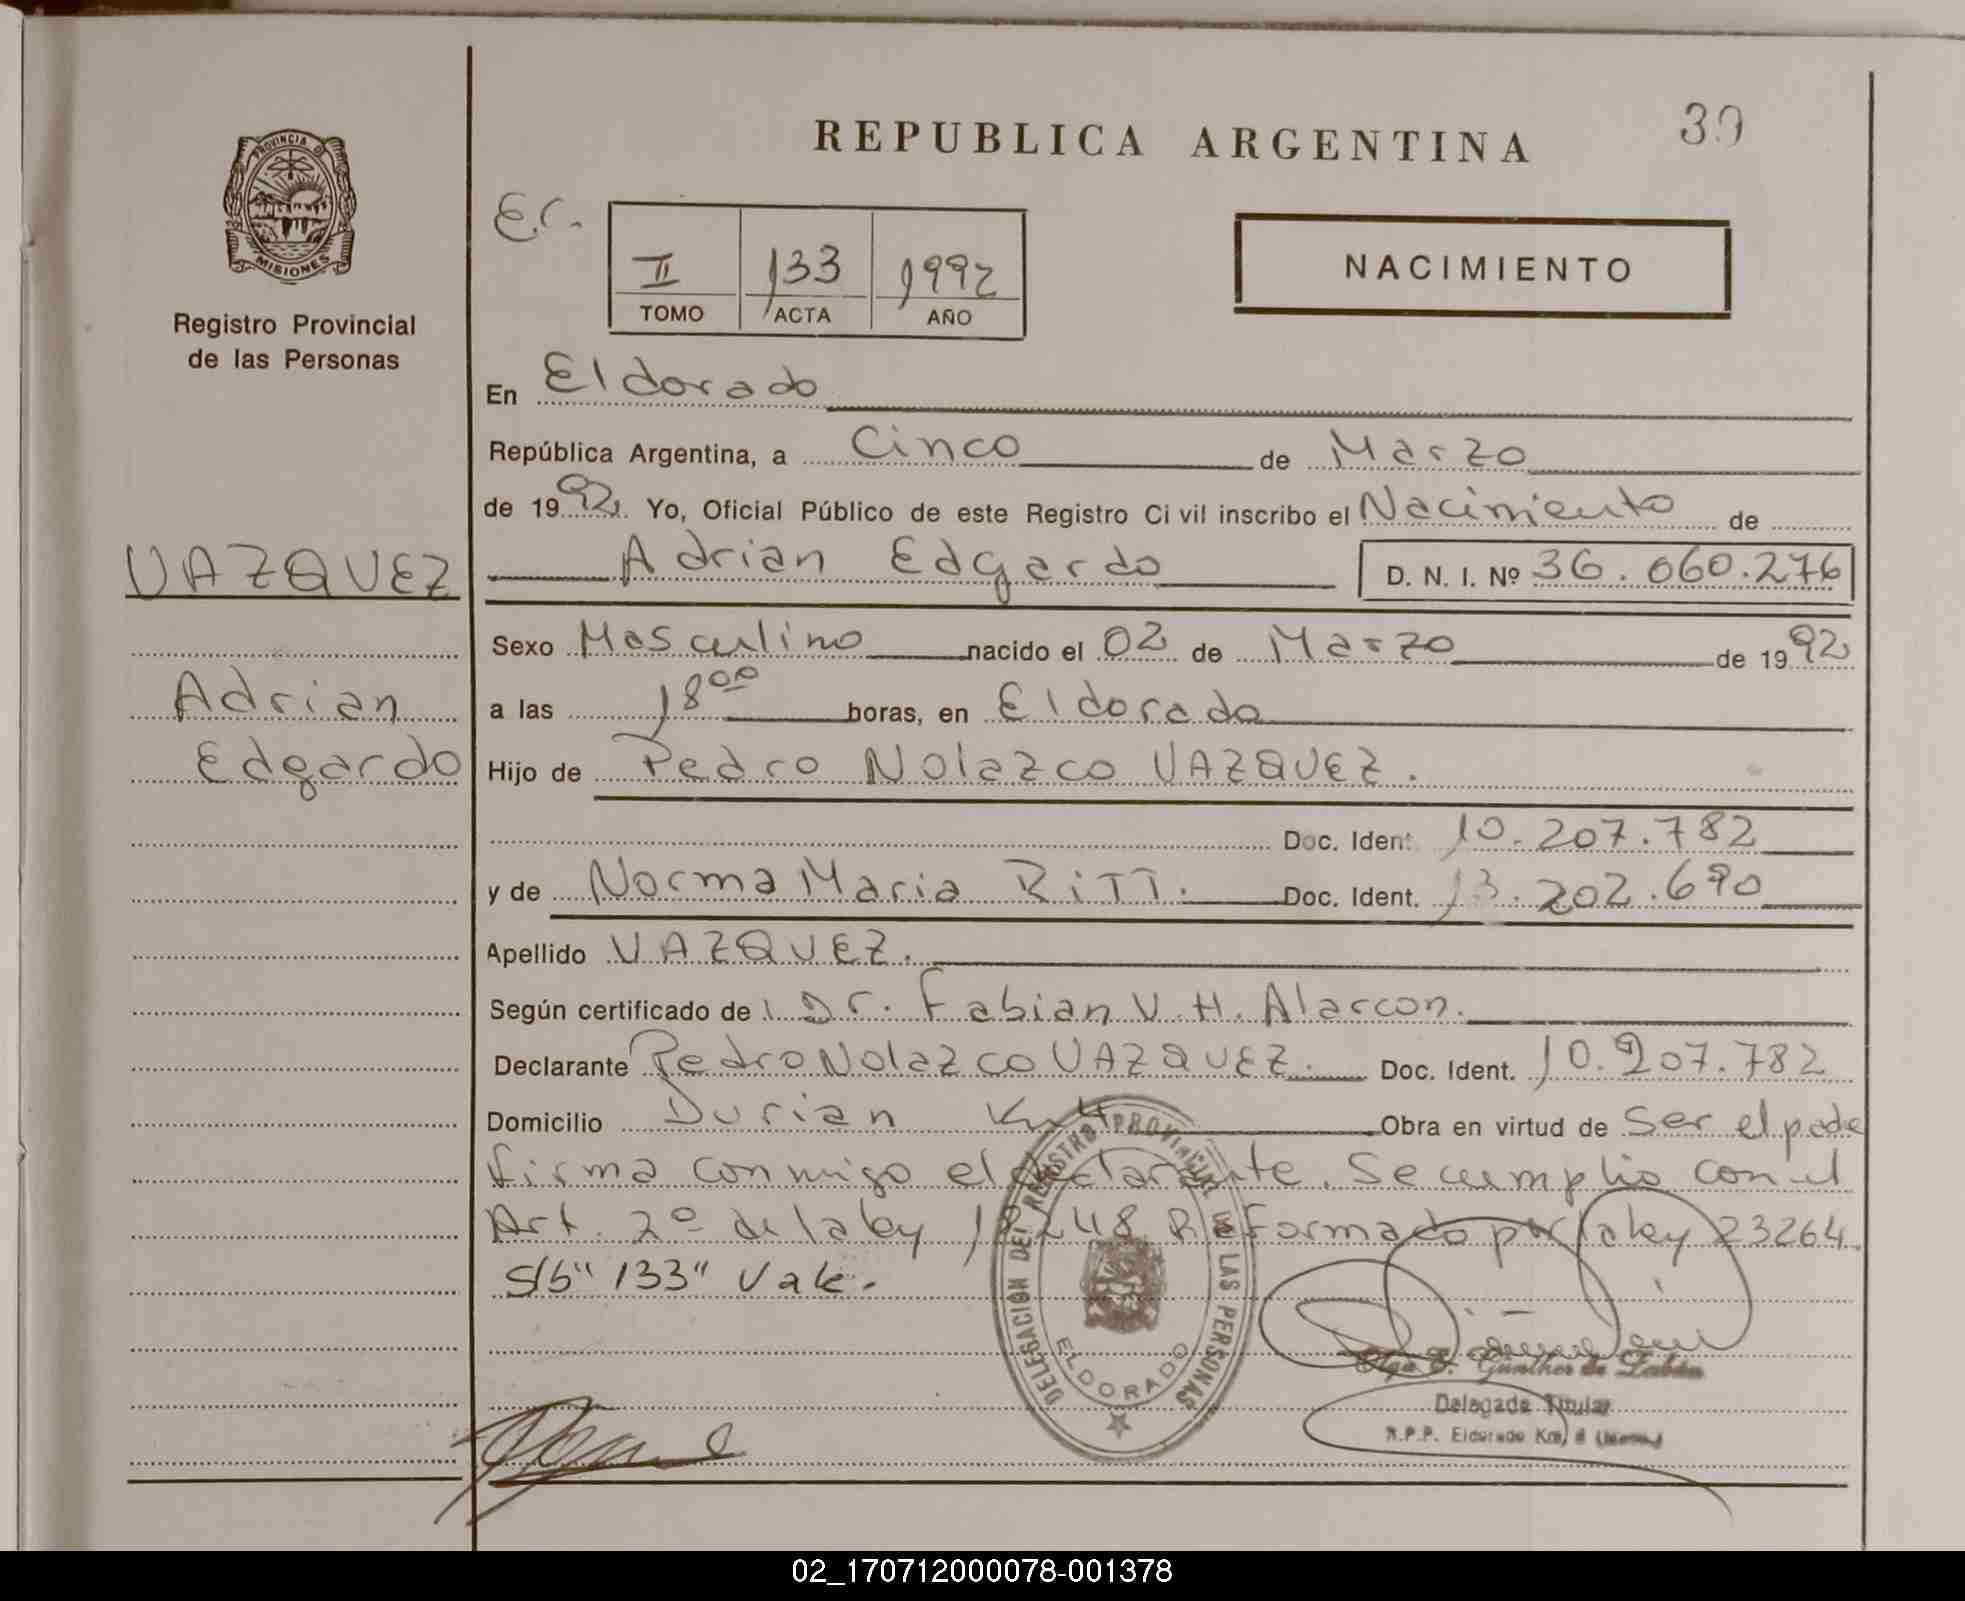 REPUBLICA ARGENTINA
39
PROVINCIA D
MISIONES
Registro Provincial
de las Personas
E.C.
II 133 1992
TOMO ACTA AÑO
NACIMIENTO
En Eldorado
República Argentina, a Cinco de Marzo
de 1992. Yo, Oficial Público de este Registro Ci vil inscribo el Nacimiento de
VAZQUEZ
Adrian Edgardo D. N. I. Nº 36.060.276
Sexo Masculino nacido el 02 de Marzo de 1992
Adrian
a las 18 00 horas, en Eldorado
Edgardo
Hijo de Pedro Nolazco VAZQUEZ.
Doc. Ident. 10.207.782
y de Norma Maria RiTT. Doc. Ident. 13.202.690
Apellido VAZQUEZ.
Según certificado de Dr. Fabian V. H. Alarcon.
Declarante Pedro Nolazco VAZQUEZ. Doc. Ident. 10.207.782
Domicilio Durian Km 4 Obra en virtud de Ser el padre
firma conmigo el declarante. Se cumplio con el
Art. 2º de la ley 18248 Reformado por la ley 23264.
S/b "133" Vale.
DELEGACION DEL REGISTRO PROVINCIAL DE LAS PERSONAS
ELDORADO
Olga E. Günther de
Delegada Titular
R.P.P. Eldorado Km,
02_170712000078-001378